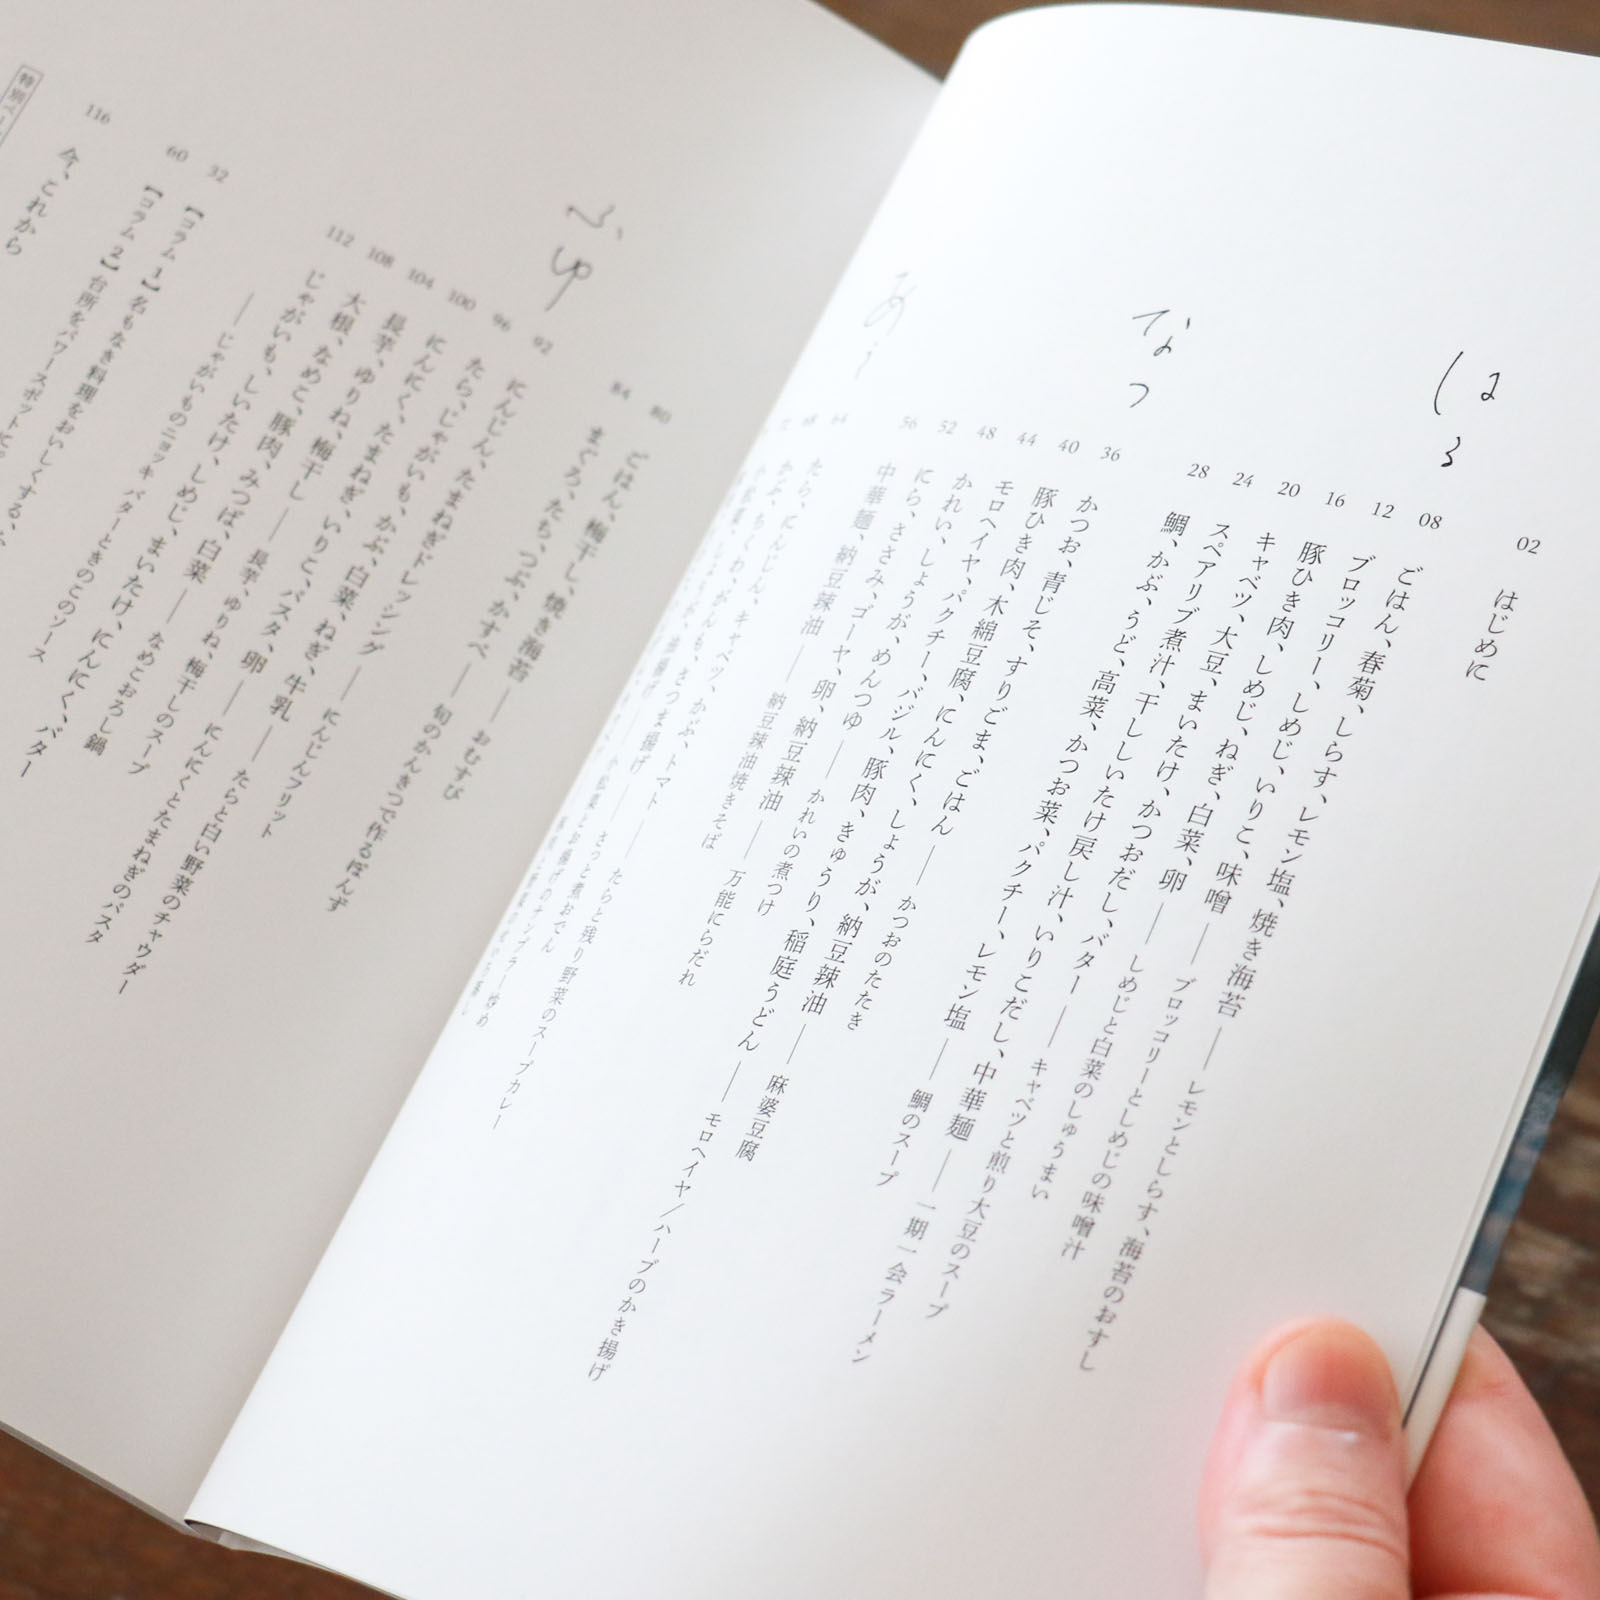 はる
02 はじめに
08 ごはん、春菊、しらす、レモン塩、焼き海苔 ── レモンとしらす、海苔のおすし
12 ブロッコリー、しめじ、いりこ、味噌 ── ブロッコリーとしめじの味噌汁
16 豚ひき肉、しめじ、ねぎ、白菜、卵 ── しめじと白菜のしゅうまい
20 キャベツ、大豆、まいたけ、かつおだし、バター ── キャベツと煎り大豆のスープ
24 スペアリブ煮汁、干ししいたけ戻し汁、いりこだし、中華麺 ── 一期一会ラーメン
28 鯛、かぶ、うど、高菜、かつお菜、パクチー、レモン塩 ── 鯛のスープ
なつ
36 かつお、青じそ、すりごま、ごはん ── かつおのたたき
40 豚ひき肉、木綿豆腐、にんにく、しょうが、納豆辣油 ── 麻婆豆腐
44 モロヘイヤ、パクチー、バジル、豚肉、きゅうり、稲庭うどん ── モロヘイヤ/ハーブのかき揚げ
48 かれい、しょうが、めんつゆ ── かれいの煮つけ
52 にら、ささみ、ゴーヤ、卵、納豆辣油 ── 万能にらだれ
56 中華麺、納豆辣油 ── 納豆辣油焼きそば
あき
64 たら、にんじん、キャベツ、かぶ、トマト ── たらと残り野菜のスープカレー
68 かぶ、ちくわ、がんも、さつま揚げ ── さっと煮おでん
72 小松菜、しょうが、油揚げ ── 小松菜とお揚げのナンプラー炒め
ふゆ
80 ごはん、梅干し、焼き海苔 ── おむすび
84 まぐろ、たち、つぶ、かすべ ── 旬のかんきつで作るぽんず
92 にんじん、たまねぎドレッシング ── にんじんフリット
96 たら、じゃがいも、かぶ、白菜、ねぎ、牛乳 ── たらと白い野菜のチャウダー
100 にんにく、たまねぎ、いりこ、パスタ、卵 ── にんにくとたまねぎのパスタ
104 長芋、ゆりね、梅干し ── 長芋、ゆりね、梅干しのスープ
108 大根、なめこ、豚肉、みつば、白菜 ── なめこおろし鍋
112 じゃがいも、しいたけ、しめじ、まいたけ、にんにく、バター
── じゃがいものニョッキ バターときのこのソース
32 【コラム 1】名もなき料理をおいしくする、
60 【コラム 2】台所をパワースポットに。
116 今、これから
特別ペー